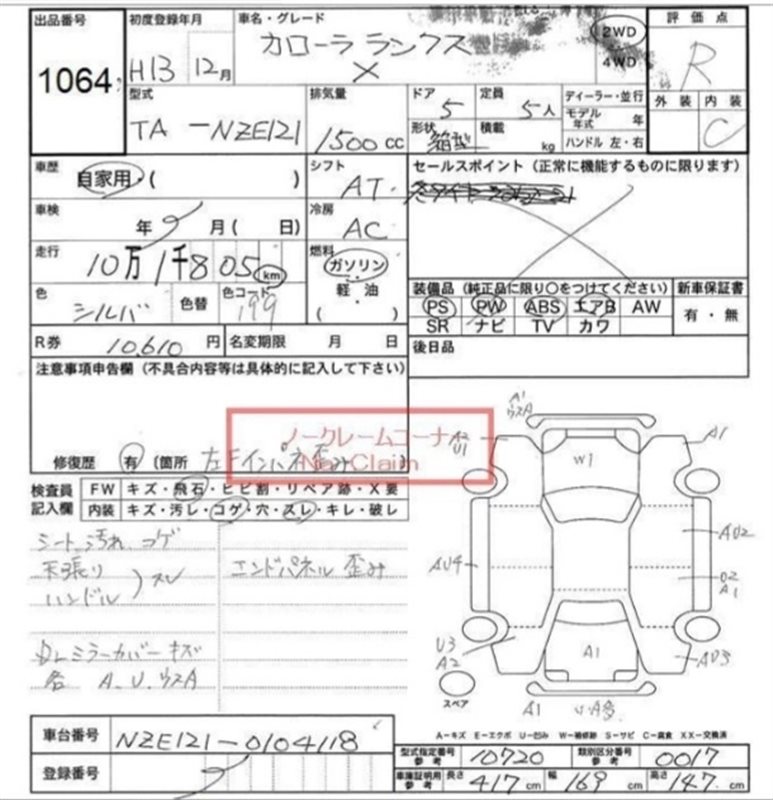 出品番号
1064
初度登録年月
H13 12月
車名・グレード
カローラ ランクス
X
2WD
4WD
評価点
R
外装 内装
C
型式
TA-NZE121
排気量
1500cc
ドア
5
定員
5人
形状
箱型
積載
kg
ディーラー・並行
モデル年式 年
ハンドル 左・右
車歴
自家用・( )
シフト
AT
セールスポイント(正常に機能するものに限ります)
車検
年 月( 日)
冷房
AC
走行
10万1千805km
燃料
ガソリン
軽・油
( )
色
シルバ
色替
色コード
199
装備品(純正品に限り○をつけてください)
PS PW ABS エアB AW
SR ナビ TV カワ
新車保証書
有・無
R券 10,610円
名変期限 月 日
後日品
注意事項申告欄(不具合内容等は具体的に記入して下さい)
ノークレームコーナー
No Claim
修復歴 有(箇所 左Fインパネ歪み
検査員
記入欄
FW キズ・飛石・ヒビ割・リペア跡・X要
内装 キズ・汚レ・コゲ・穴・スレ・キレ・破レ
シート汚れ コゲ
天張り
ハンドル
スレ
エンドパネル 歪み
ミラーカバーキズ
各 A.U.ウスA
A1
ウスA
A2
U1
A1
W1
AU2
AU4
U2
A1
U3
A2
A1
AU3
A1
スペア
A-キズ E-エクボ U-凹み W-補修跡 S-サビ C-腐食 XX-交換済
車台番号
NZE121-0104118
登録番号
型式指定番号
参考
10720
類別区分番号
参考
0017
車庫証明用
参考
長さ 417cm
幅 169cm
高さ 147cm